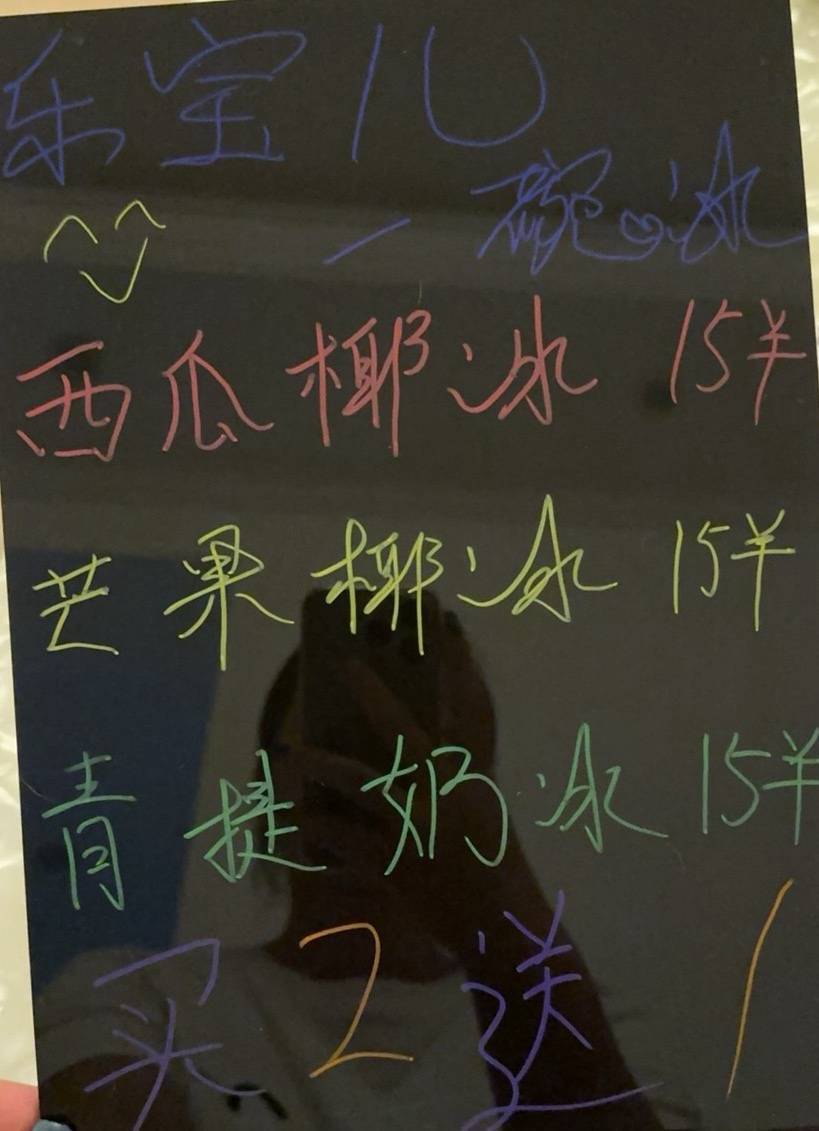 乐宝儿
一碗冰
西瓜椰冰 15¥
芒果椰冰 15¥
青提奶冰 15¥
买2送1